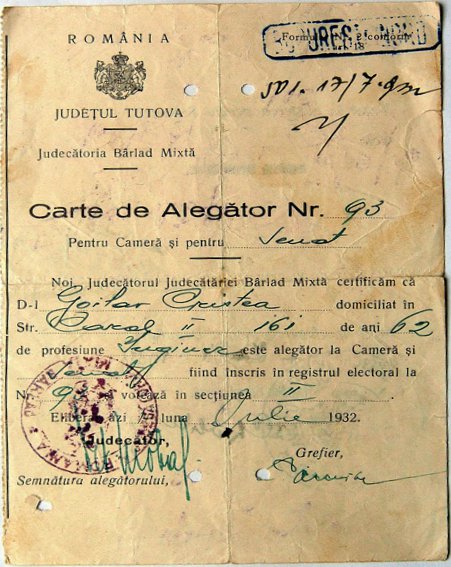 ROMÂNIA
JUDEȚUL TUTOVA
Judecătoria Bârlad Mixtă
Formular Nr. 2 conform
Carte de Alegător Nr. 93
Pentru Cameră și pentru Senat
Noi, Judecătorul Judecătăriei Bârlad Mixtă certificăm că
D-l Goilav Cristea domiciliat în
Str. Carol II 161 de ani 62
de profesiune Inginer este alegător la Cameră și
Senat fiind înscris în registrul electoral la
Nr. 93 și votează în secțiunea II
Eliberat azi luna Iulie 1932.
Judecător,
Grefier,
Semnătura alegătorului,